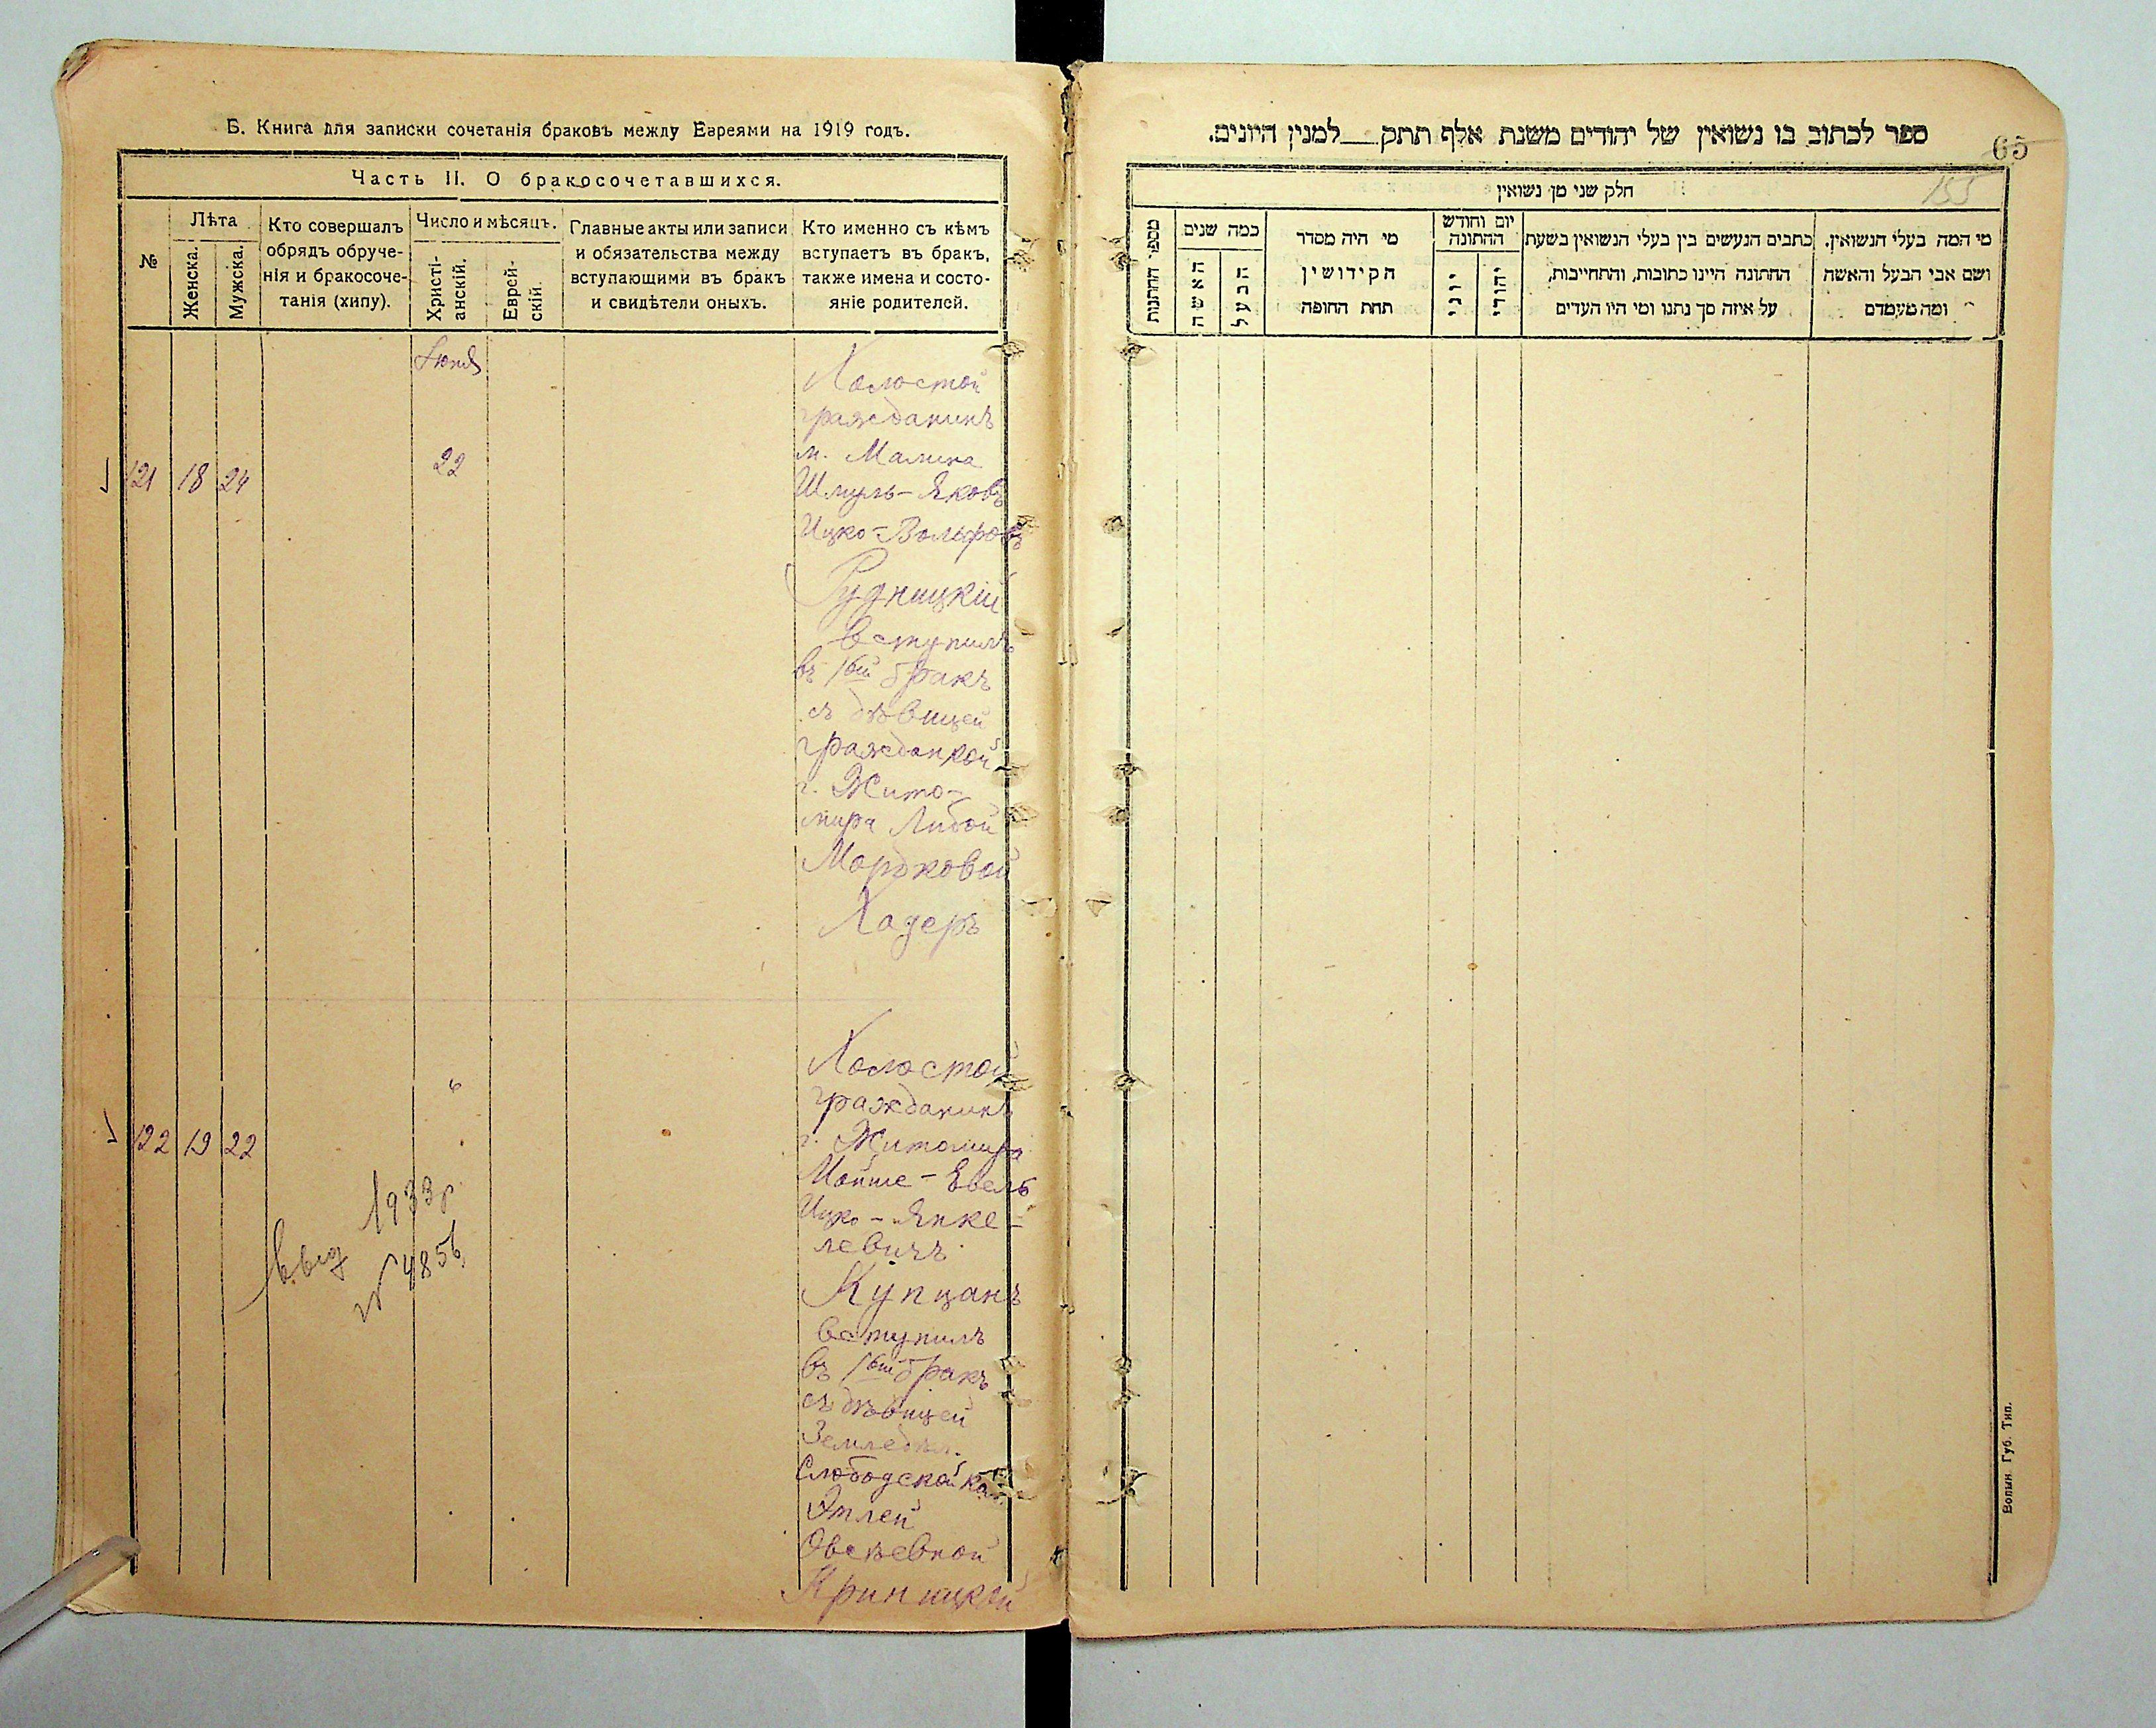 Б. Книга для записки сочетанія браковъ между Евреями на 1919 годъ.
Часть II. О бракосочетавшихся.
№
Лѣта
Женска.
Мужска.
Кто совершалъ
обрядъ обруче-
нія и бракосоче-
танія (хипу).
Число и мѣсяцъ.
Христі-
анскій.
Еврей-
скій.
Главные акты или записи
и обязательства между
вступающими въ бракъ
и свидѣтели оныхъ.
Кто именно съ кѣмъ
вступаетъ въ бракъ,
также имена и состо-
яніе родителей.
121 18 24
22
Холостой
гражданинъ
м. Малина
Шмуль-Яковъ
Ицко-Вольфовъ
Рудницкій
вступилъ
въ 1ый бракъ
съ дѣвицей
гражданкой
г. Жито-
мира Либой
Мордковой
Хадеръ
122 19 22
"
Холостой
гражданинъ
г. Житомира
Мойше-Евель
Ицко-Янке-
левичъ
Купцанъ
вступилъ
въ 1ый бракъ
съ дѣвицей
Земледѣл.
Слободской кол.
Этлей
Овсѣевной
Криницкой
1933 г.
№ 4856
ספר לכתוב בו נשואין של יהודים משנת אלף תתק למנין היונים.
65
155
חלק שני מן נשואין
מספר החתונות
כמה שנים
האשה
הבעל
מי היה מסדר
הקידושין
תחת החופה
יום וחודש
החתונה
יוני
יהודי
כתבים הנעשים בין בעלי הנשואין בשעת
החתונה היינו כתובות, והתחייבות,
על איזה סך נתנו ומי היו העדים
מי המה בעלי הנשואין.
ושם אבי הבעל והאשה
ומה מעמדם
Волын. Губ. Тип.